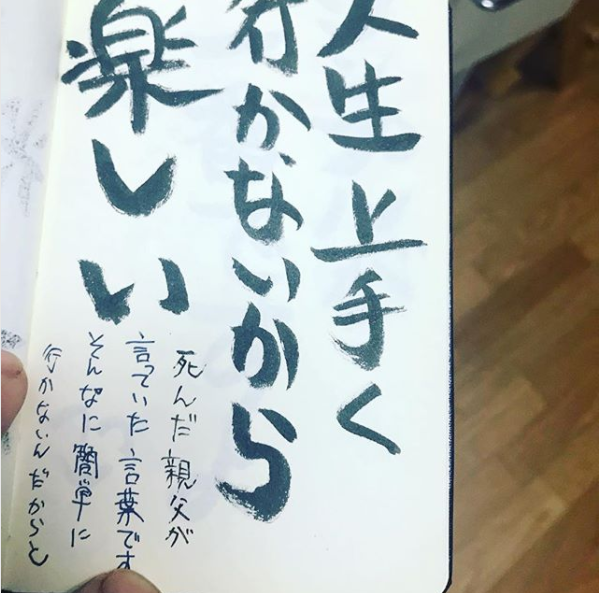 人生上手く
行かないから
楽しい
死んだ親父が
言っていた言葉です
そんなに簡単に
行かないんだからと